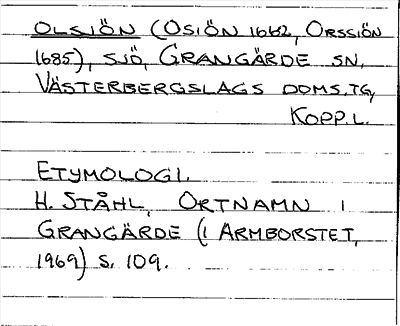 OLSJÖN (OSIÖN 1662, ORSSIÖN
1685), SJÖ, GRANGÄRDE SN,
VÄSTERBERGSLAGS DOMS.TG,
KOPP.L.
ETYMOLOGI.
H. STÅHL, ORTNAMN I
GRANGÄRDE (I ARMBORSTET,
1969) S. 109.